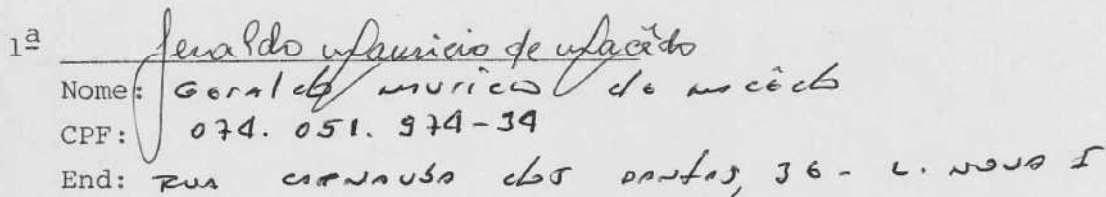 1ª Geraldo Mauricio de Macêdo
Nome: Geraldo Muricio de Macêdo
CPF: 074.051.974-34
End: Rua Carnauba dos Dantas, 36 - L. Nova I